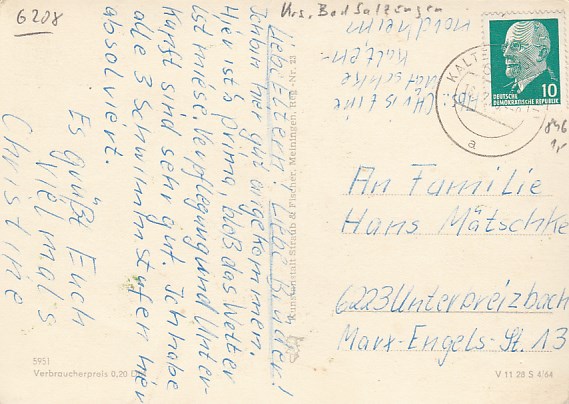 6208
Krs. Bad Salzungen
Abs.: Christine
Mätschke
Kalten-
nordheim
DEUTSCHE
DEMOKRATISCHE REPUBLIK
10
KALT
a
An Familie
Hans Mätschke
6223 Unterbreizbach
Marx-Engels-St. 13
Liebe Eltern! Liebe Brüder!
Schon hier gut angekommen.
Hier ist's prima, bloß das Wetter
ist miese. Verpflegung und Unter-
kunft sind sehr gut. Ich habe
alle 3 Schwimmstufen hier
absolviert.
Es grüßt Euch
vielmals
Christine
Kunstanstalt Straub & Fischer, Meiningen, Reg.-Nr. 23
5951
Verbraucherpreis 0,20 D
V 11 28 S 4/64